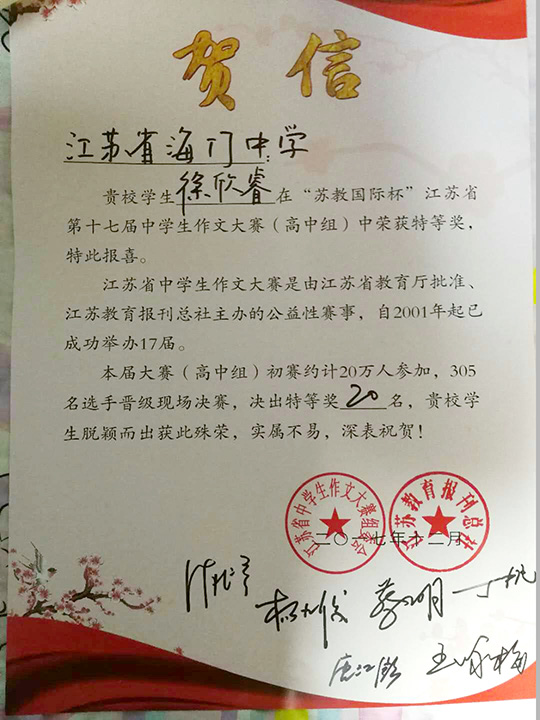 贺信
江苏省海门中学:
贵校学生徐欣睿在“苏教国际杯”江苏省
第十七届中学生作文大赛(高中组)中荣获特等奖,
特此报喜。
江苏省中学生作文大赛是由江苏省教育厅批准、
江苏教育报刊总社主办的公益性赛事,自2001年起已
成功举办17届。
本届大赛(高中组)初赛约计20万人参加,305
名选手晋级现场决赛,决出特等奖20名,贵校学
生脱颖而出获此殊荣,实属不易,深表祝贺!
江苏省中学生作文大赛组委会
江苏教育报刊总社
二〇一七年十二月
蔡明
王咏梅